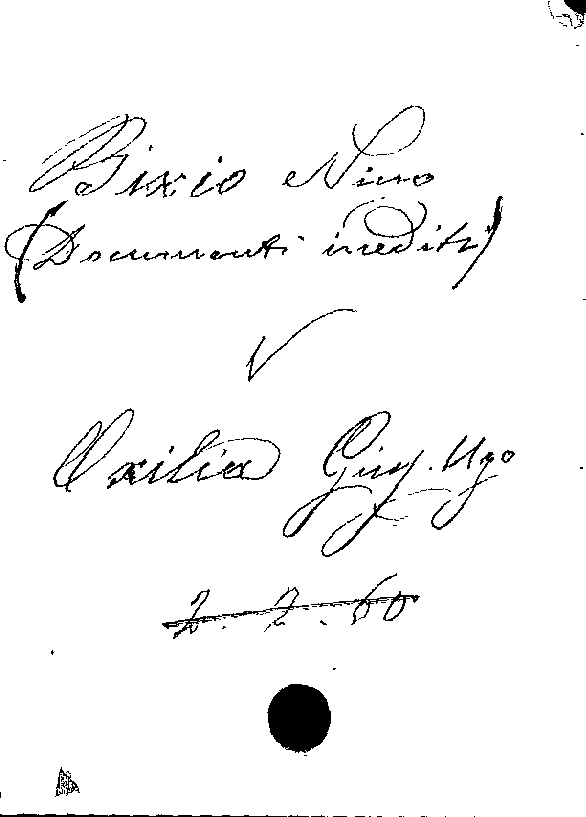 Bixio Nino
(Documenti inediti)
Oxilia Gius. Ugo
2. 2. 60